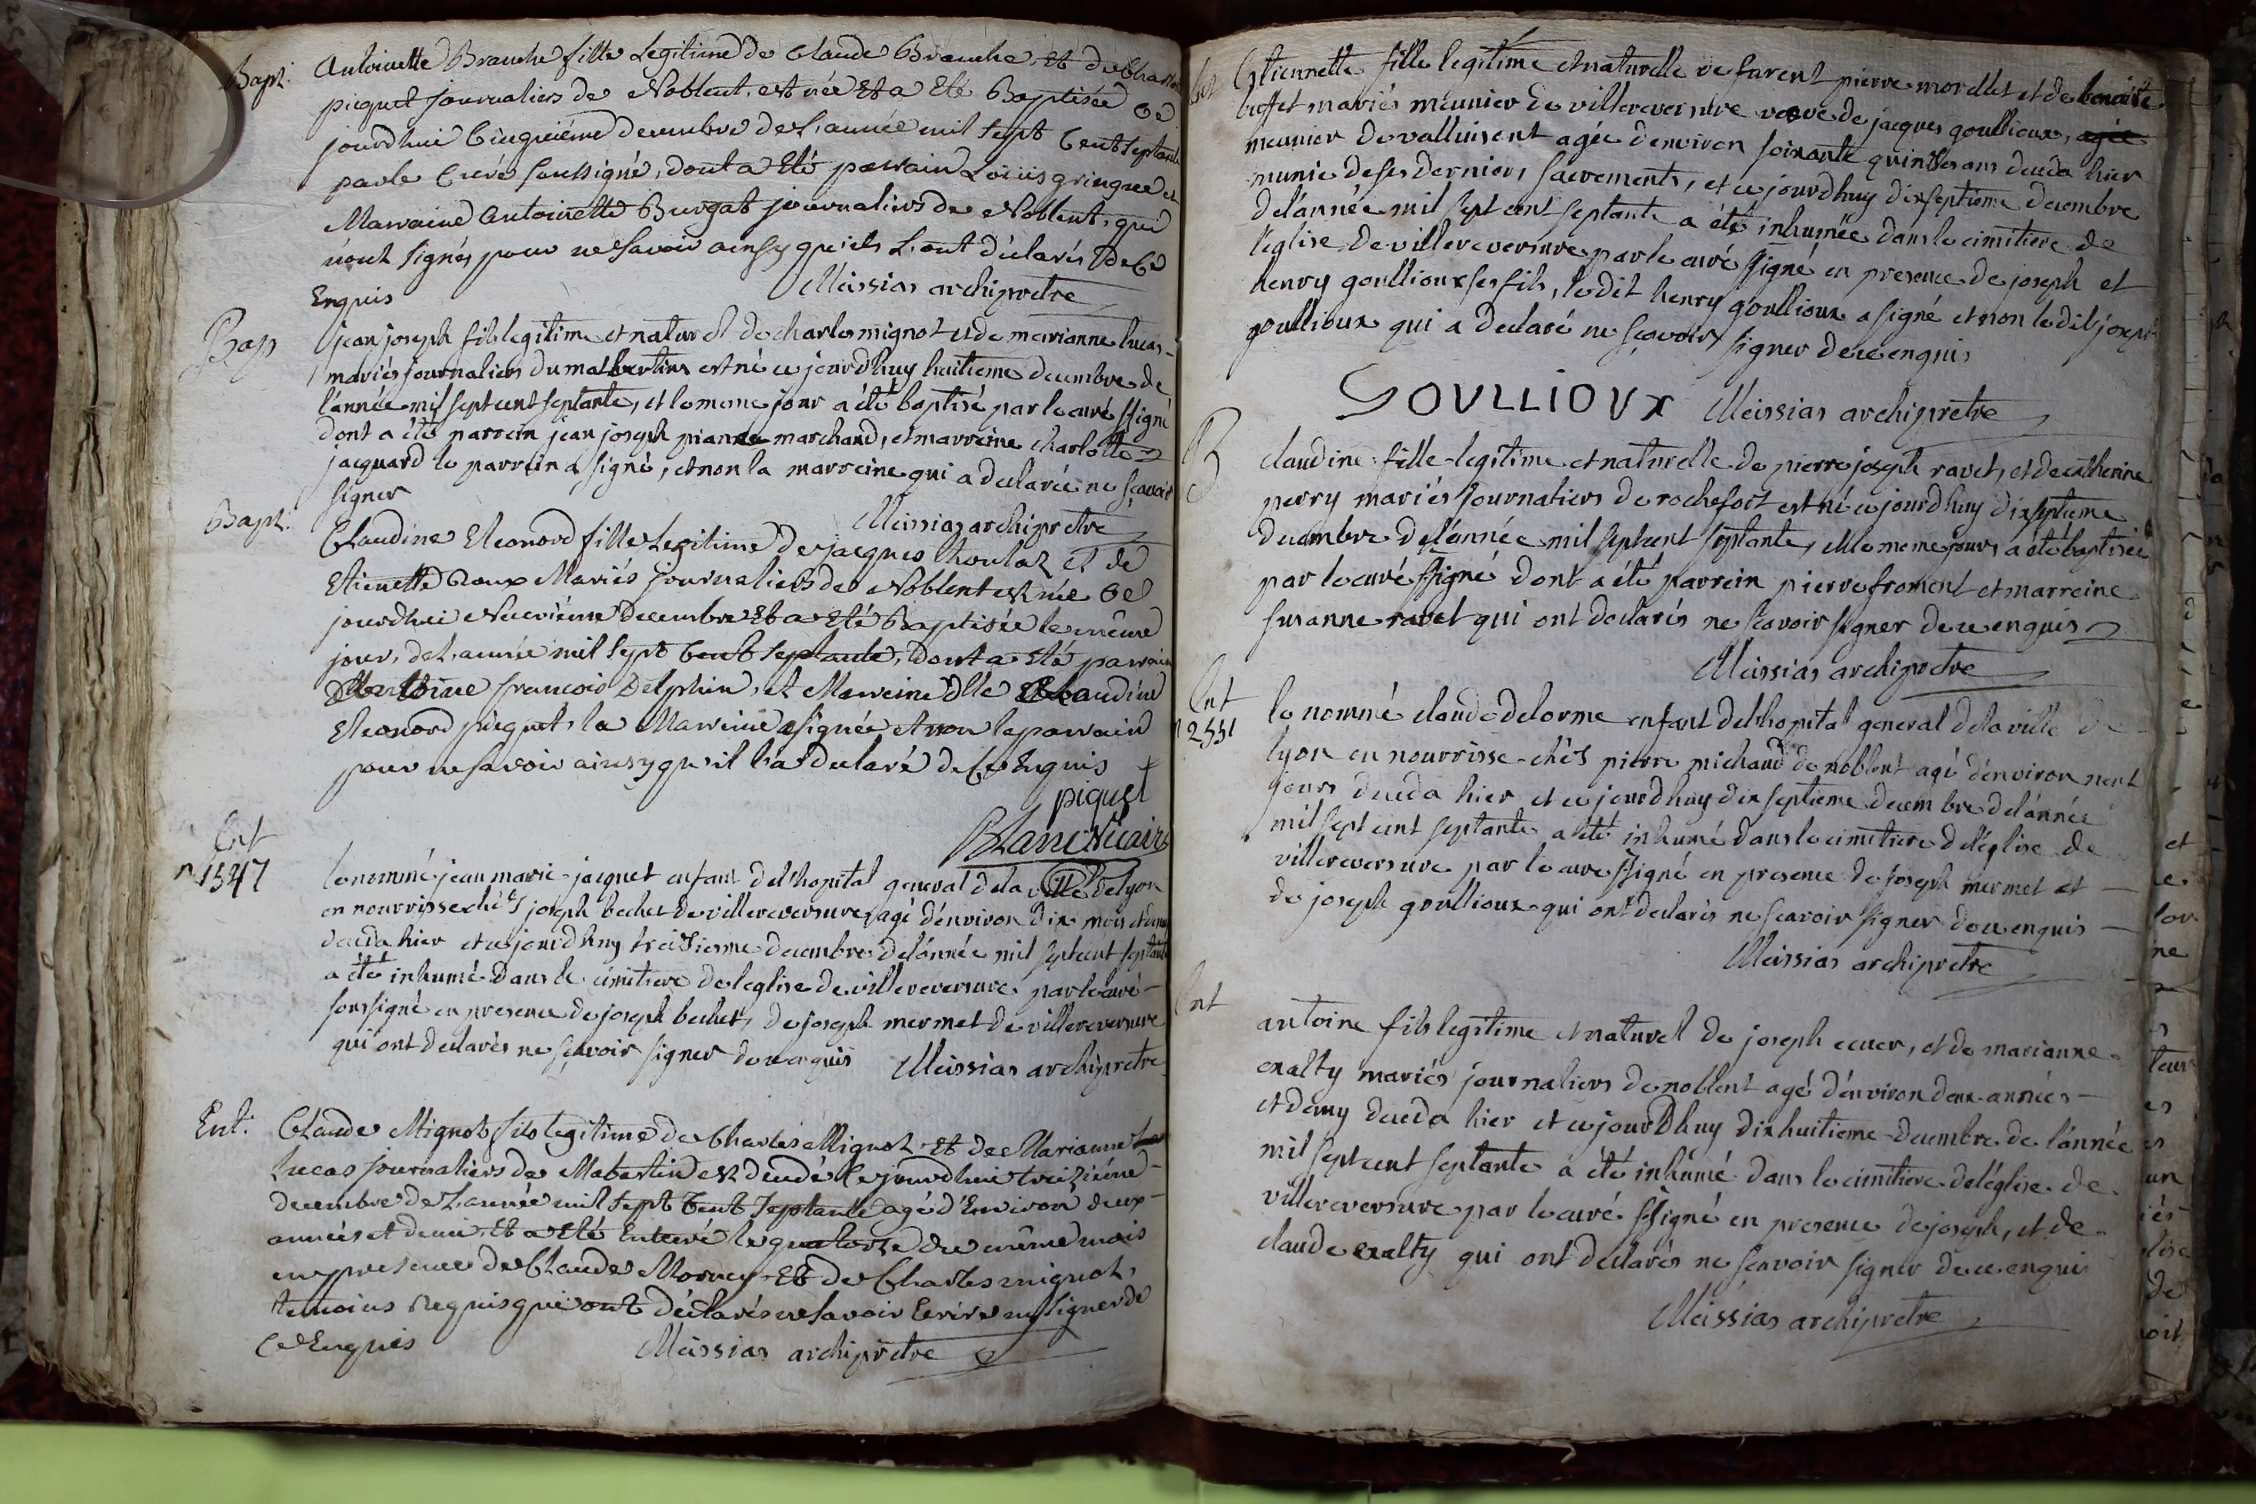 Bapt. Antoinette Branche fille Legitime de Claude Branche et de
piequet journaliers de Noblent, est née et a Eté Baptisée ce
jourd'hui Cinquiéme decembre de L'année mil sept Cent septante
par le Curé soussigné, dont a Eté parrain Louiis gringoz et
Marraine antoinette Burgat journaliers de Noblent, qui
n'ont signés pour ne savoir ainsy qu'ils L'ont déclarés de Ce
Enquis Meissias archiprêtre
Bap jean joseph fils legitime et naturel de charle mignot et de marianne lucas
mariés journaliers du est né ce jourd'huy huitieme decembre de
l'année mil sept cent septante, et le meme jour a été baptisé par le curé ssigné
dont a été parrein jean joseph marchand, et marreine charlotte
jacquard le parrein a signé, et non la marreine qui a declarée ne sçavoir
signer Meissias archiprêtre
Bapt. Claudine Eleonord fille Legitime de jacques et de
Etienette Roux Mariés journaliers de Noblent est née Ce
jourdhui Neuviéme decembre Et a Eté Baptisée le même
jour, de L'année mil sept Cent septante, dont a Eté parrain
Antoine francois Delphin, et Marreine dlle Claudine
Eleonord piequet, la Marreine a signée et non le parrain
pour ne savoir ainsy qu'il l'a declaré de Ce Enquis
piquet
Blanc Vicaire
Ent
n 1547 le nommé jean marie jacquet enfant de l'hopital general de la ville de lyon
en nourrisse chès joseph bechet de villereversure, agé d'environ dix mois et demy
deceda hier et ce jourd'huy treisiesme decembre de l'année mil sept cent septante
a été inhumé dans le cimitiere de leglise de villereversure par le curé
soussigné en presence de joseph bechet, de joseph mermet de villereversure
qui ont declarés ne sçavoir signer de ce enquis Meissias archiprêtre
Ent. Claude Mignot fils legitime de Charles Mignot et de Marianne
Lucas journaliers de Mabertin est decedé Ce jourd'hui treiziéme
decembre de L'année mil sept Cent septante agé d'Environ deux
années et demi, Et a Eté Enterré le quatorze du même mois
en presence de Claude Mornay Et de Charles mignot,
temoins Requis qui ont déclarés ne savoir Ecrire ny signer de
Ce Enquis Meissias archiprêtre
Etiennette fille legitime et naturelle de furent pierre morellet et de benoite
buffet mariés meunier de villereversure veove de jacques goullioux,
meunier de valluisent agée d'environ soixante quinse ans deceda hier
munie de ses derniers sacrements, et ce jourdhuy dixseptieme decembre
de l'année mil sept cent septante a été inhumée dans le cimitiere de
l'eglise de villereversure par le curé ssigné en presence de joseph et
henry goullioux ses fils, le dit henry goullioux a signé et non le dit joseph
goullioux qui a declaré ne sçavoir signer de ce enquis
GOULLIOUX Meissias archiprêtre
B claudine fille legitime et naturelle de pierre joseph ravet, et de catherine
perry mariés journaliers de rochefort est né ce jourdhuy dixseptieme
decembre de l'année mil sept cent septante, et le meme jours a été baptisée
par le curé ssigné dont a été parrein pierre froment et marreine
susanne ravet qui ont declarés ne scavoir signer de ce enquis
Meissias archiprêtre
Ent
n 2551 le nommé claude delorme enfant de l'hopital general de la ville de
lyon en nourrisse chès pierre michaud de noblent agé d'environ neuf
jours deceda hier et ce jourd'huy dix septieme decembre de l'année
mil sept cent septante a été inhumé dans le cimitiere de l'église de
villereversure par le curé ssigné en presence de joseph mermet et
de joseph goullioux qui ont declarés ne scavoir signer de ce enquis
Meissias archiprêtre
Ent antoine fils legitime et naturel de joseph cuer, et de marianne
exalty mariés journaliers de noblent agé d'environ deux années
et demy deceda hier et ce jourdhuy dix huitieme decembre de l'année
mil sept cent septante a été inhumé dans le cimitiere de l'église de
villereversure par le curé ssigné en presence de joseph, et de
claude exalty qui ont declarés ne scavoir signer de ce enquis
Meissias archiprêtre